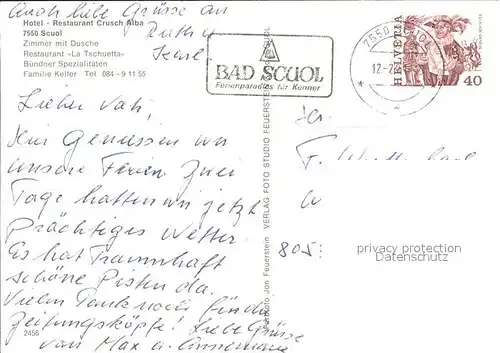 Auch liebe Grüsse an
Ruth u
Hotel - Restaurant Crusch Alba
7550 Scuol
Zimmer mit Dusche
Restaurant «La Tschuetta»
Bündner Spezialitäten
Familie Keller Tel 084 - 9 11 55
BAD SCUOL
Ferienparadies für Kenner
7550
12-2
HELVETIA
40
Lieber Vati,
Wir geniessen
unsere Ferien. Zwei
Tage hatten wir jetzt
Prächtiges Wetter.
Es hat Traumhaft
schöne Pisten da.
Vielen Dank noch für die
Zeitungsköpfe! Liebe Grüsse
von Max u. Annemarie
2456
Jon Feuerstein VERLAG FOTO STUDIO FEUERSTEIN SCUOL
805
privacy protection
Datenschutz